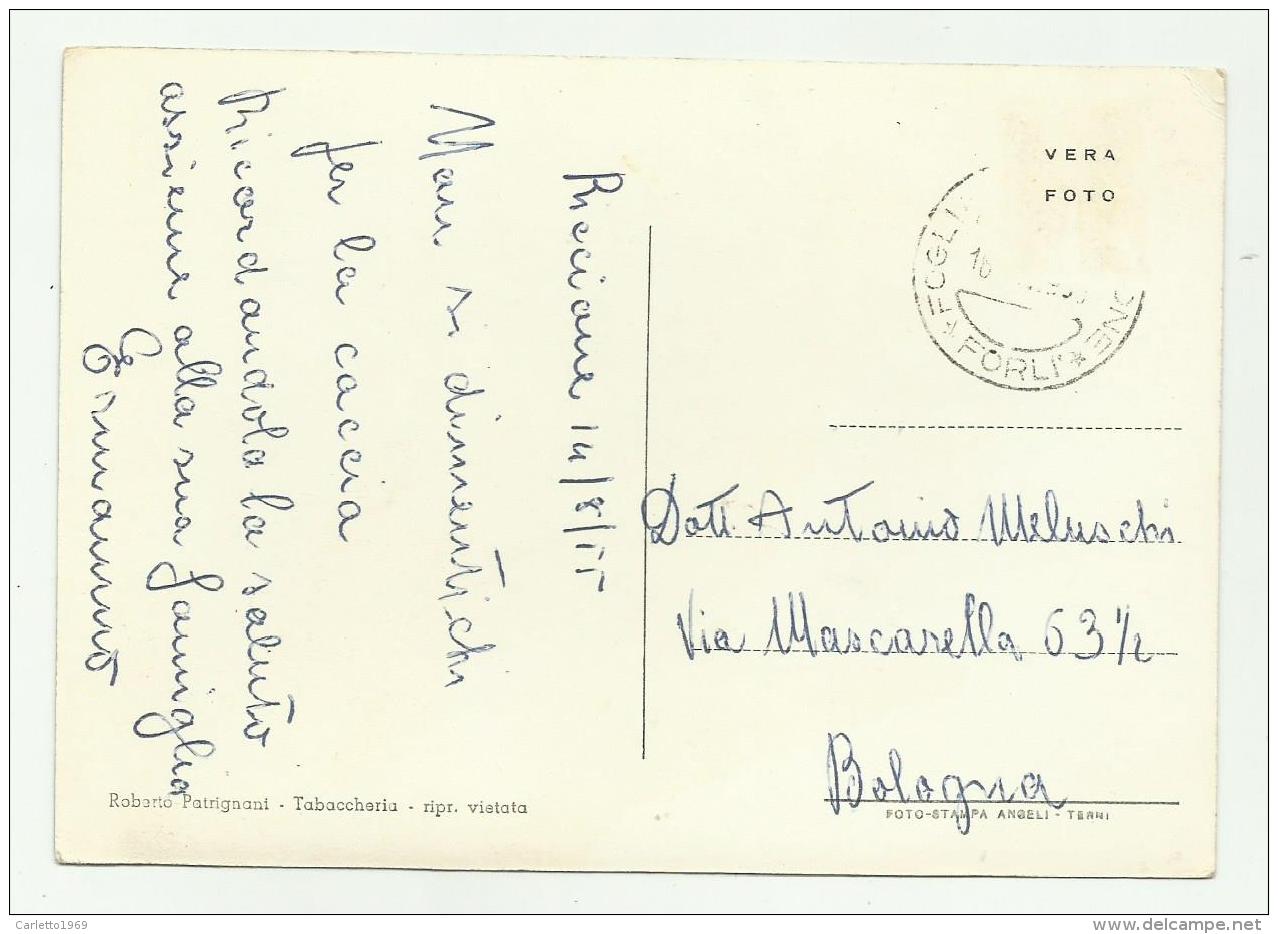 Riccione 14/8/55
Non si dimentichi
per la caccia
Ricordandola la saluto
assieme alla sua famiglia
Ermanno
VERA
FOTO
FORLI'
Dott Antonio Meluschi
Via Mascarella 63 1/2
Bologna
Roberto Patrignani - Tabaccheria - ripr. vietata
FOTO-STAMPA ANGELI - TERNI
Carletto1969
www.delcampe.net